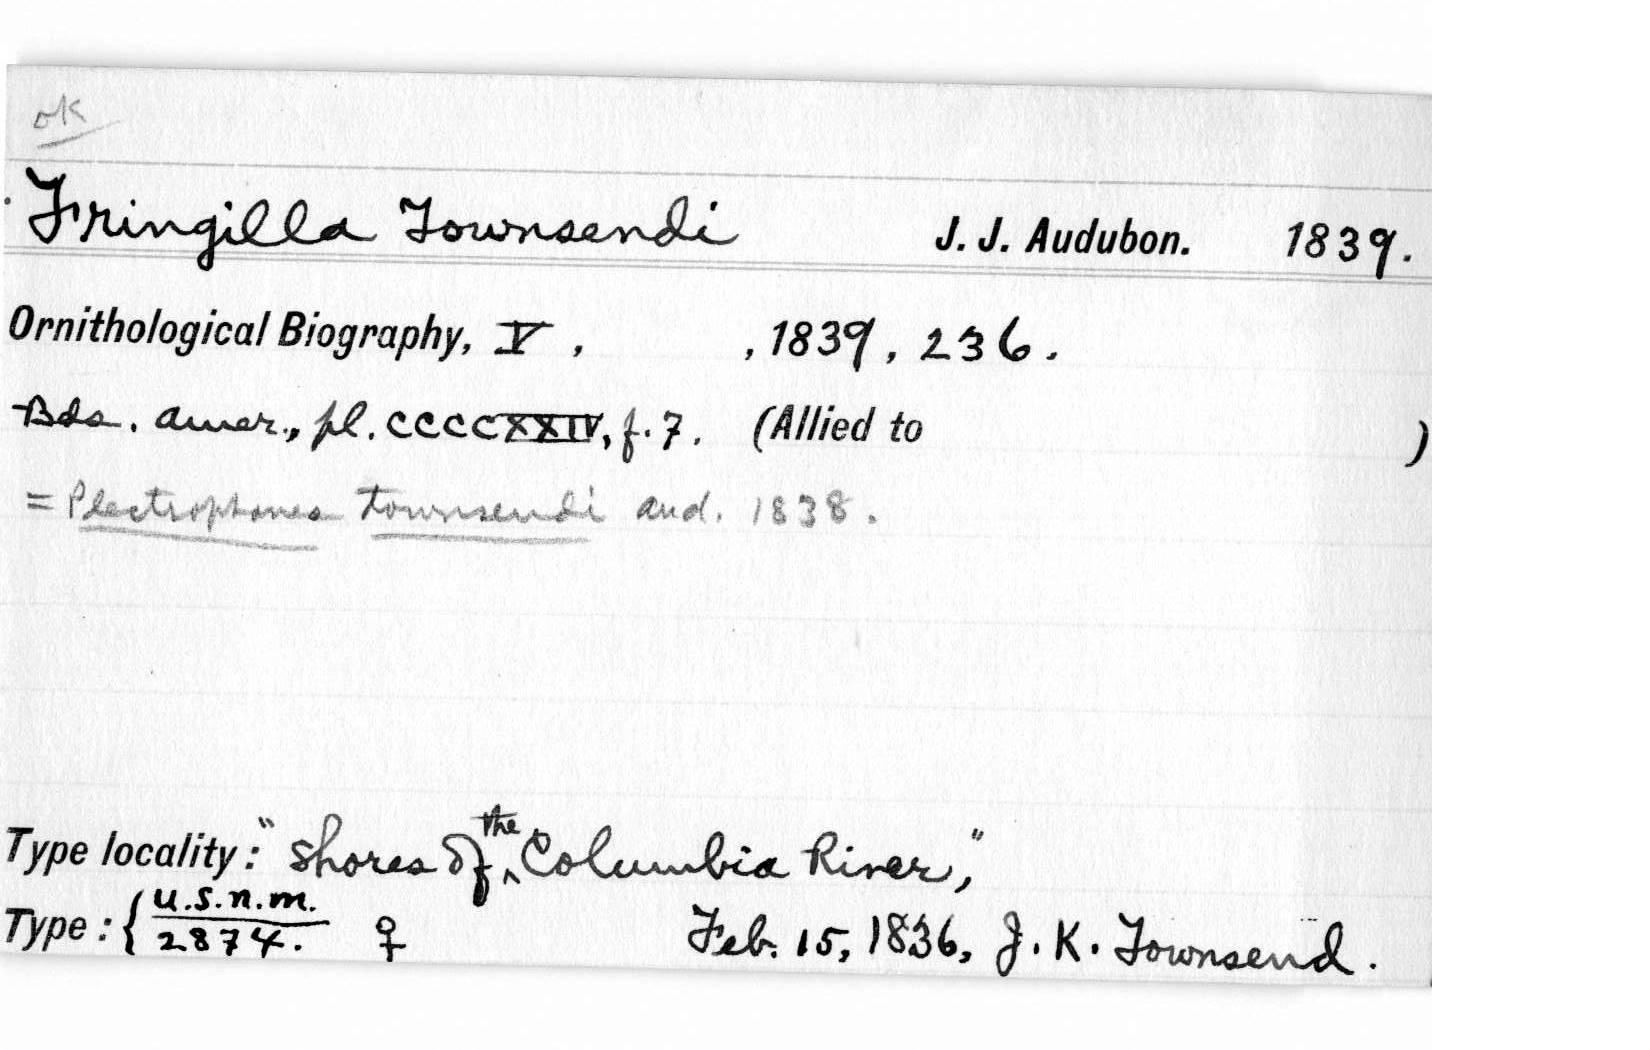 ok
Fringilla Townsendi J. J. Audubon. 1839.
Ornithological Biography, V, , 1839, 236.
Bds. Amer., pl. CCCCXXIV, f. 7. (Allied to )
= Plectrophanes Townsendi Aud. 1838.
Type locality: "Shores of the Columbia River,"
Type: { U.S.N.M. 2874. ♀ Feb. 15, 1836, J. K. Townsend.